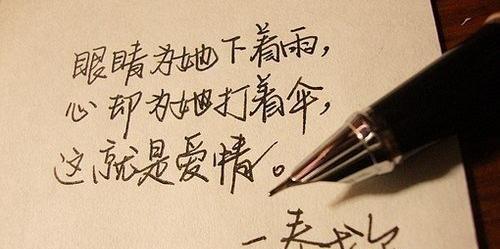 眼睛为她下着雨,
心却为她打着伞,
这就是爱情。